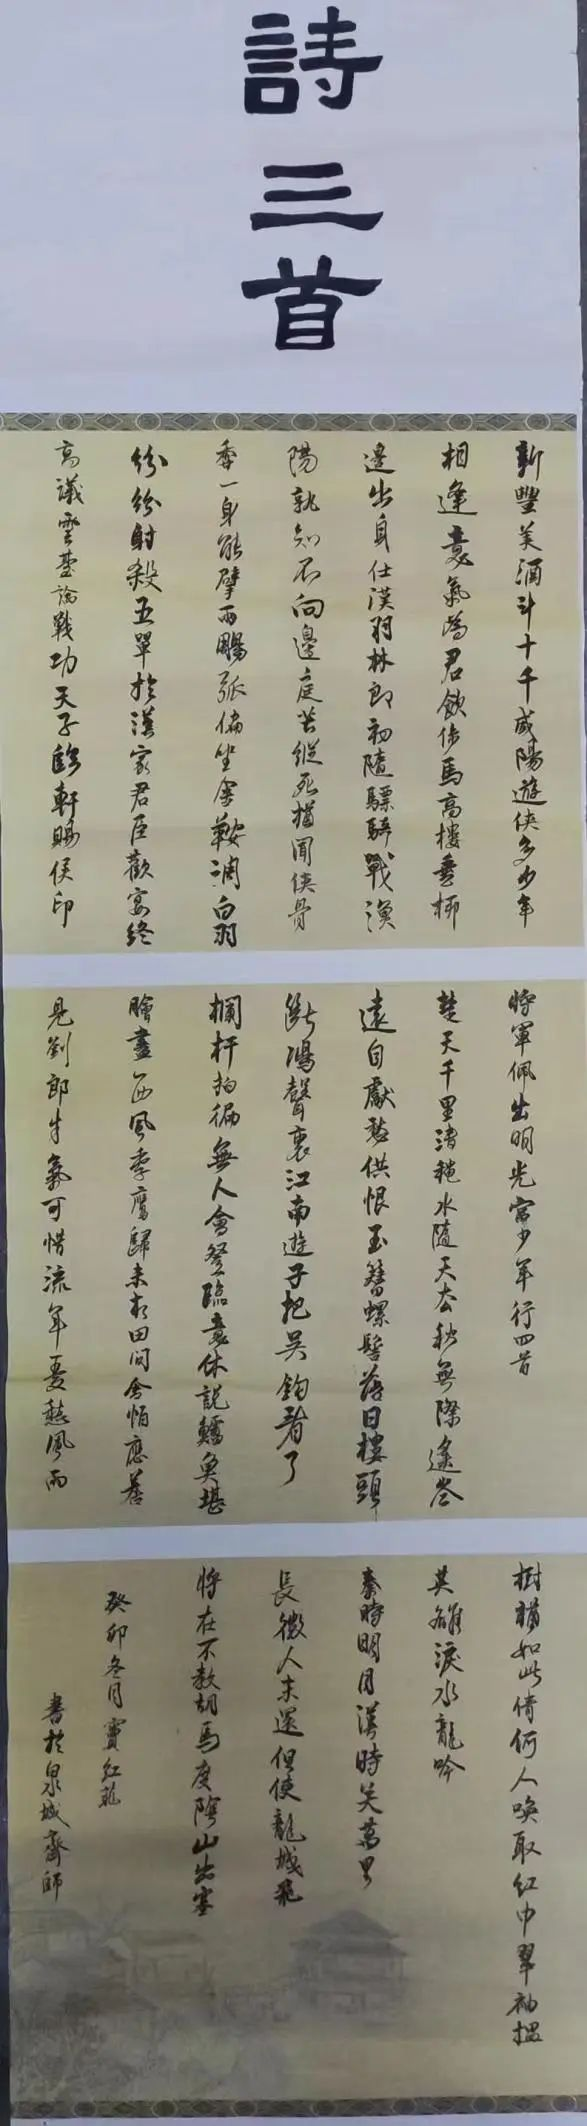 詩三首
新豐美酒斗十千咸陽遊俠多少年
相逢意氣為君飲係馬高樓垂柳
邊出身仕漢羽林郎初隨驃騎戰漁
陽孰知不向邊庭苦縱死猶聞俠骨
香一身能擘兩鵰弧偏坐金鞍調白羽
紛紛射殺五單於漢家君臣歡宴終
高議雲臺論戰功天子臨軒賜侯印
將軍佩出明光宮少年行四首
楚天千里清秋水隨天去秋無際遙岑
遠目獻愁供恨玉簪螺髻落日樓頭
斷鴻聲裏江南遊子把吳鉤看了
欄杆拍徧無人會登臨意休說鱸魚堪
膾盡西風季鷹歸未求田問舍怕應羞
見劉郎才氣可惜流年憂愁風雨
樹猶如此倩何人喚取紅巾翠袖搵
英雄淚水龍吟
秦時明月漢時關萬里
長征人未還但使龍城飛
將在不教胡馬度陰山出塞
癸卯冬月寶紅
書於泉城齊師